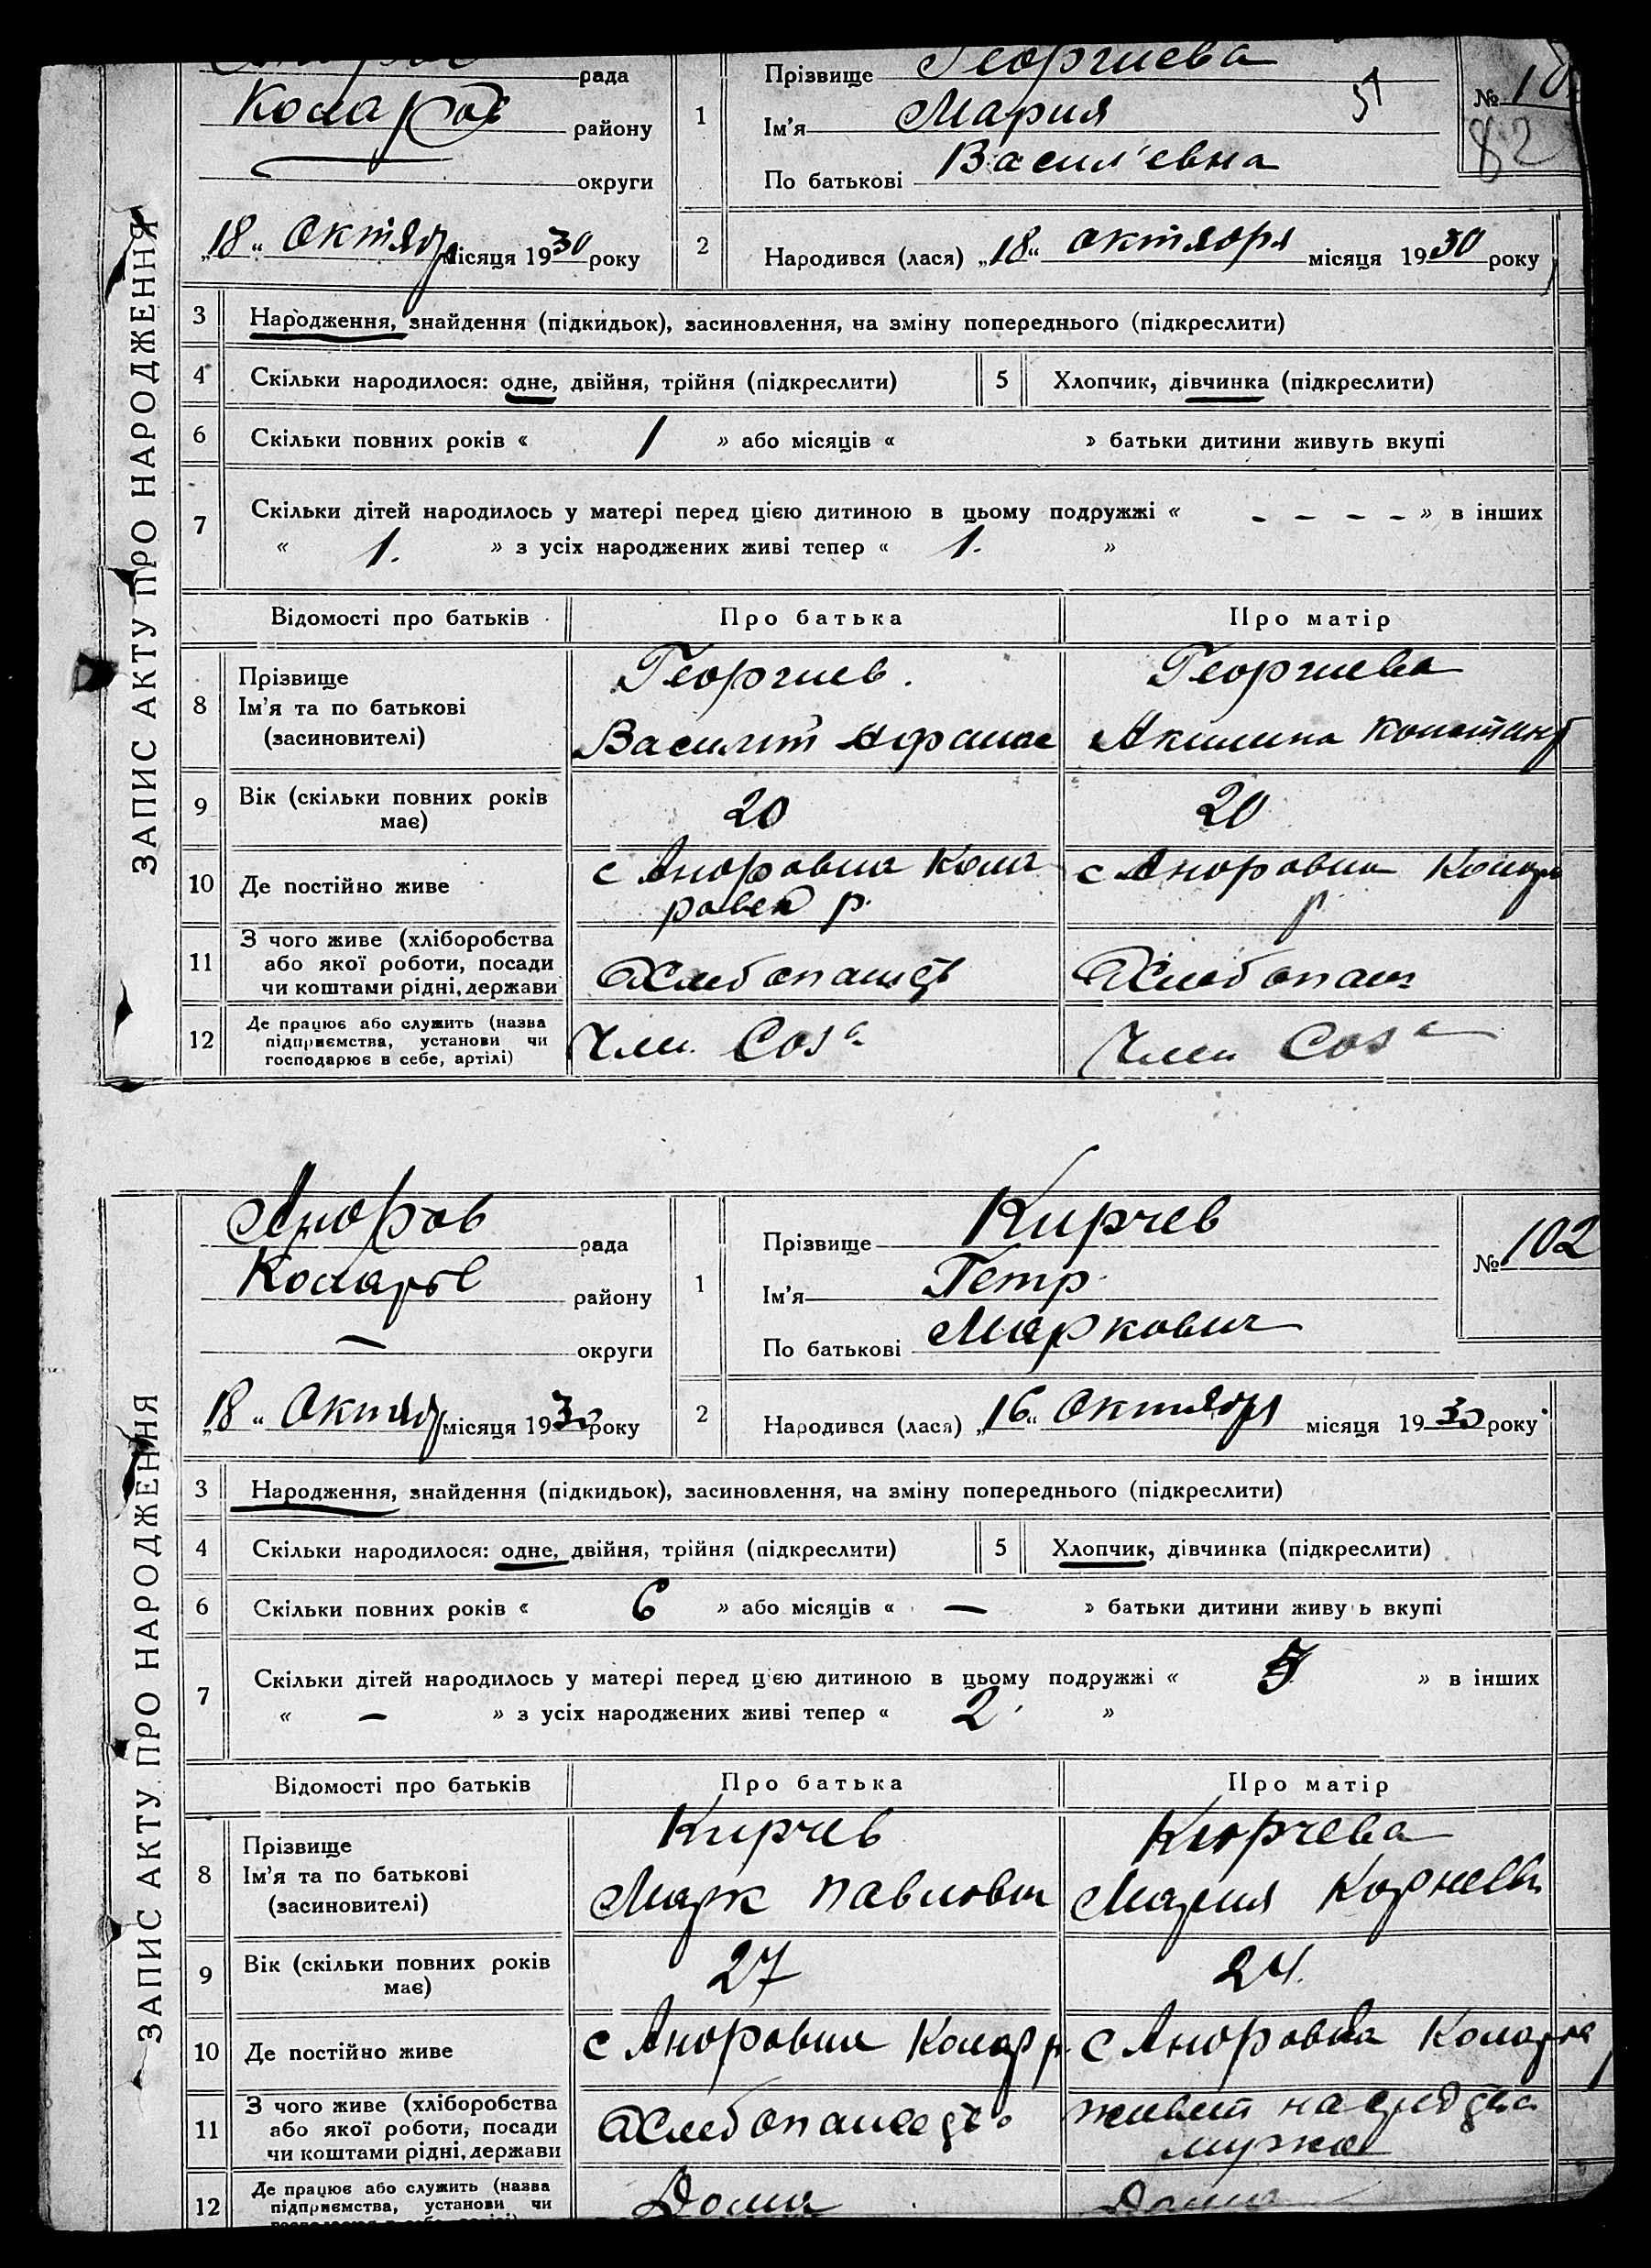 ЗАПИС АКТУ ПРО НАРОДЖЕННЯ
рада
Комаров району
округи
„18“ Октябр місяця 1930 року
1 Прізвище Георгиева
Ім’я Мария
По батькові Васил’евна
№ 10
82
2 Народився (лася) „18“ октября місяця 1930 року
3 Народження, знайдення (підкидьок), засиновлення, на зміну попереднього (підкреслити)
4 Скільки народилося: одне, двійня, трійня (підкреслити) 5 Хлопчик, дівчинка (підкреслити)
6 Скільки повних років « 1 » або місяців « » батьки дитини живуть вкупі
7 Скільки дітей народилось у матері перед цією дитиною в цьому подружжі « – – – – » в інших
« 1. » з усіх народжених живі тепер « 1. »
Відомості про батьків Про батька Про матір
8 Прізвище Георгиев. Георгиева
Ім’я та по батькові
(засиновителі) Василит Афанас Акилина Констант
9 Вік (скільки повних років має) 20 20
10 Де постійно живе с Аноровка Кома с Аноровка Комар
ровск р. р
11 З чого живе (хліборобства
або якої роботи, посади
чи коштами рідні, держави Хлебопашество Хлебопаш
12 Де працює або служить (назва
підприємства, установи чи
господарює в себе, артілі) Член Соза Член Соза
ЗАПИС АКТУ ПРО НАРОДЖЕННЯ
Аноров рада
Комаров району
— округи
„18“ Октябр місяця 1930 року
1 Прізвище Кирчев
Ім’я Петр
По батькові Маркович
№ 102
2 Народився (лася) „16“ Октября місяця 1930 року
3 Народження, знайдення (підкидьок), засиновлення, на зміну попереднього (підкреслити)
4 Скільки народилося: одне, двійня, трійня (підкреслити) 5 Хлопчик, дівчинка (підкреслити)
6 Скільки повних років « 6 » або місяців « — » батьки дитини живуть вкупі
7 Скільки дітей народилось у матері перед цією дитиною в цьому подружжі « » в інших
« — » з усіх народжених живі тепер « 2 »
Відомості про батьків Про батька Про матір
8 Прізвище Кирчев Кирчева
Ім’я та по батькові
(засиновителі) Марк Павлович Мария Корневн
9 Вік (скільки повних років має) 27 24.
10 Де постійно живе с Аноровка Комар р. с Аноровка Комаров
11 З чого живе (хліборобства
або якої роботи, посади
чи коштами рідні, держави Хлебопашество живет на средства
мужа
12 Де працює або служить (назва
підприємства, установи чи
Дома Дома